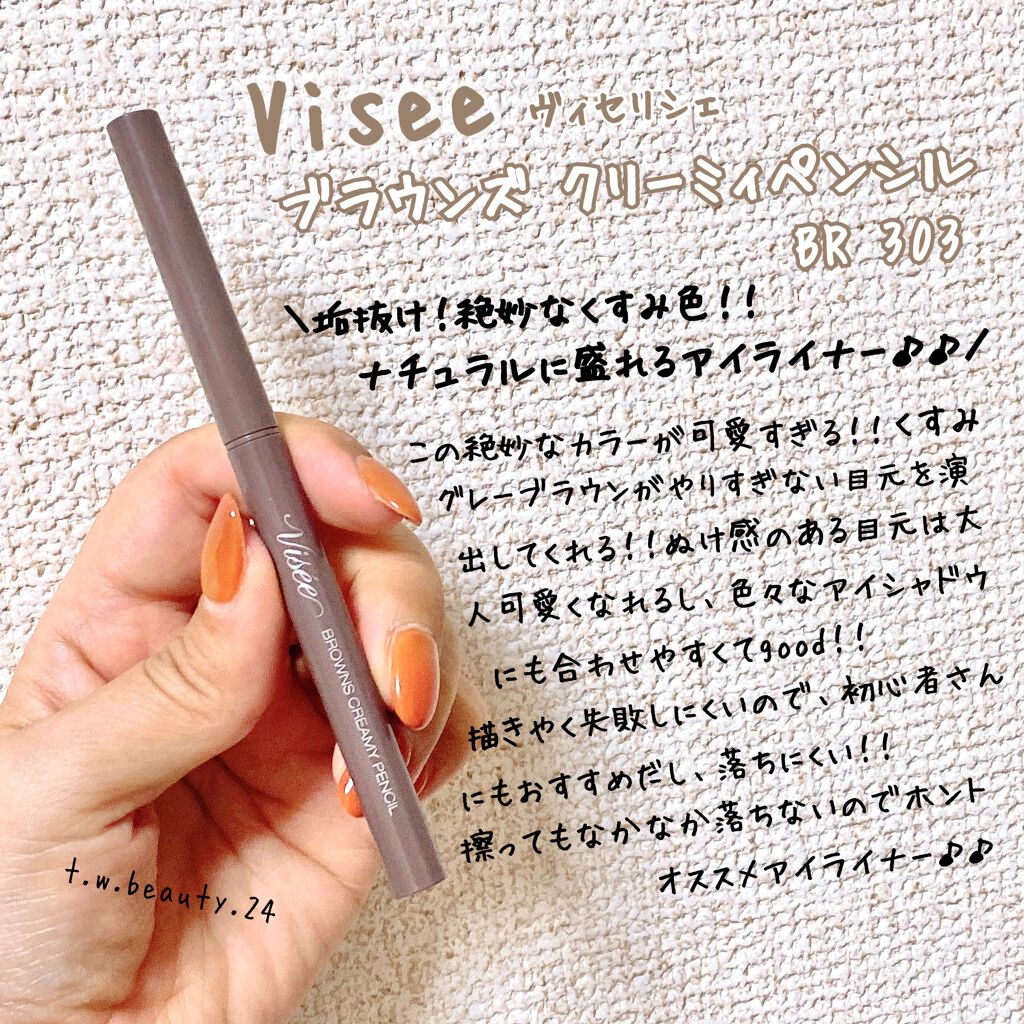 Visee ヴィセリシェ
ブラウンズ クリーミィペンシル
BR 303
\垢抜け！絶妙なくすみ色！！
ナチュラルに盛れるアイライナー♪♪/
この絶妙なカラーが可愛すぎる！！くすみ
グレーブラウンがやりすぎない目元を演
出してくれる！！ぬけ感のある目元は大
人可愛くなれるし、色々なアイシャドウ
にも合わせやすくてgood！！
描きやく失敗しにくいので、初心者さん
にもおすすめだし、落ちにくい！！
擦ってもなかなか落ちないのでホント
オススメアイライナー♪♪
Visée
BROWNS CREAMY PENCIL
t.w.beauty.24